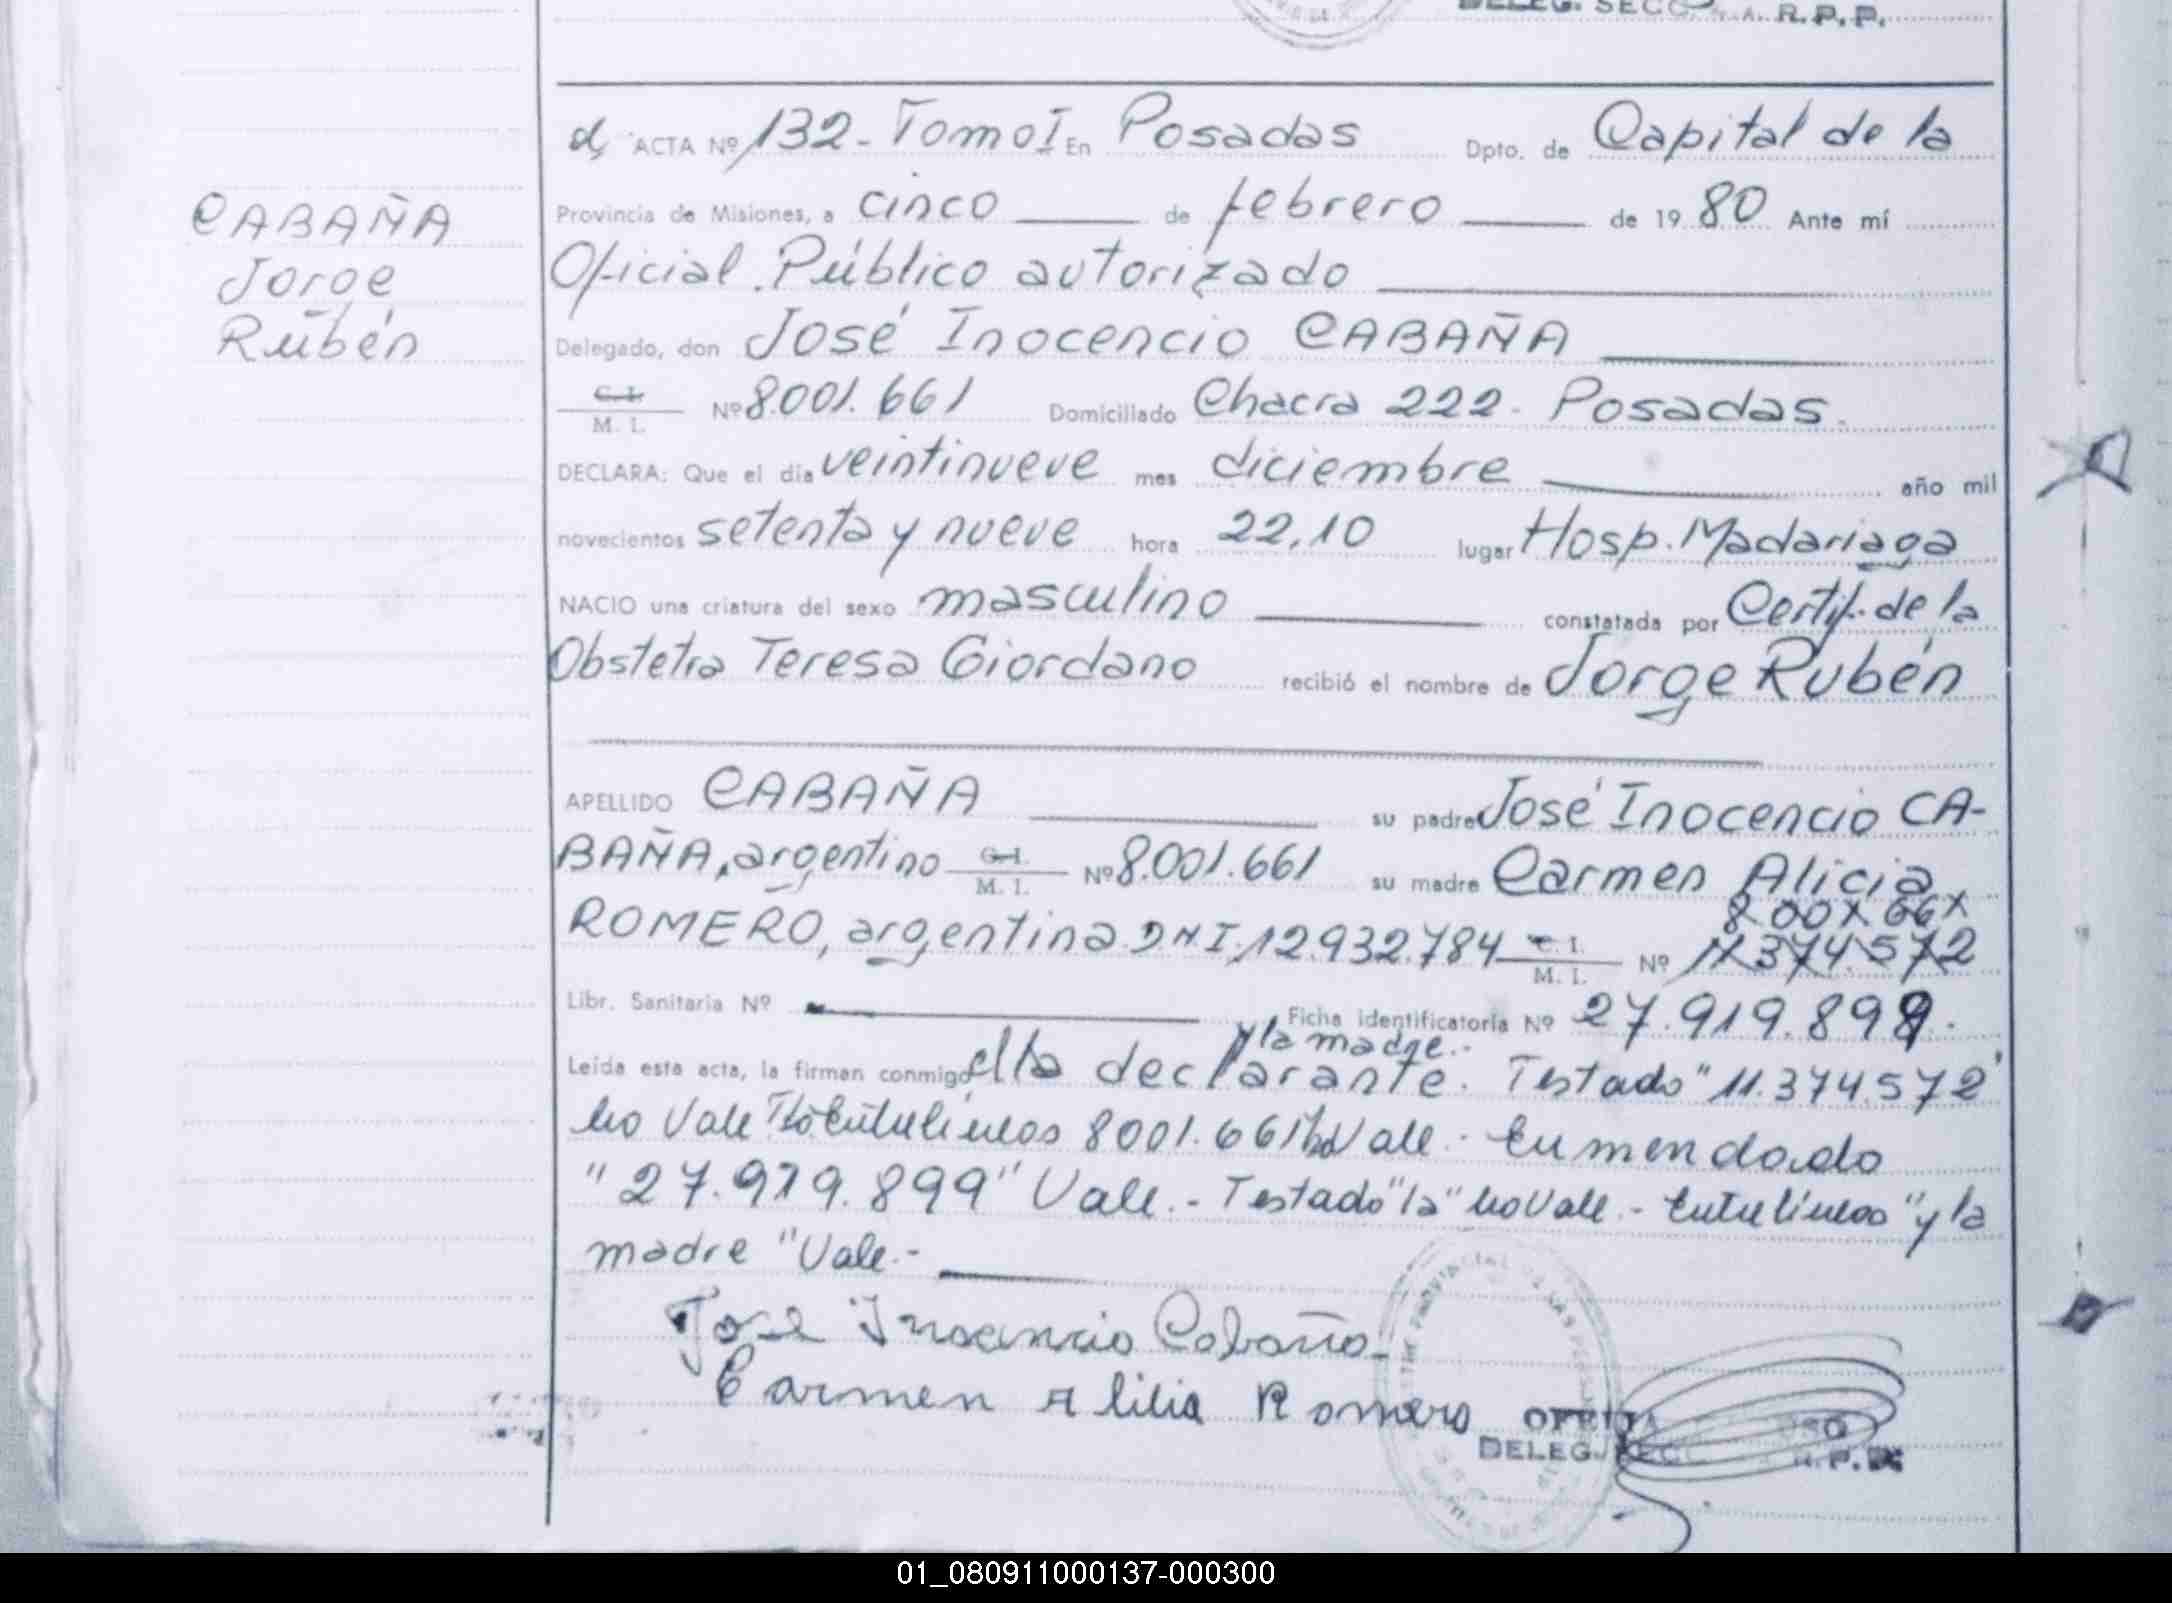 DELEG. SECC. R.P.P.
ACTA Nº 132 - Tomo I En Posadas Dpto. de Capital de la
CABAÑA
Jorge
Rubén
Provincia de Misiones, a cinco de febrero de 1980 Ante mí
Oficial Público autorizado
Delegado, don José Inocencio CABAÑA
C. I.
M. I. Nº 8.001.661 Domiciliado Chacra 222 - Posadas.
DECLARA: Que el día veintinueve mes diciembre año mil
novecientos setenta y nueve hora 22,10 lugar Hosp. Madariaga
NACIO una criatura del sexo masculino constatada por Certif. de la
Obstetra Teresa Giordano recibió el nombre de Jorge Rubén
APELLIDO CABAÑA su padre José Inocencio CA-
BAÑA, argentino C. I. M. I. Nº 8.001.661 su madre Carmen Alicia
8.001.661
ROMERO, argentina D N I. 12.932.784 C. I. M. I. Nº 11.374.572
Libr. Sanitaria Nº Ficha identificatoria Nº 27.919.899.
y la madre.-
Leída esta acta, la firman conmigo el la declarante. Testado "11.374.572"
no Vale Entrelíneas 8001.661 no Vale.- Enmendado
"27.919.899" Vale.- Testado "la" no Vale.- Entrelíneas "y la
madre" Vale.-
Jose Inosencio Cabaña
Carmen Alicia Romero
DELEG. SECC. R.P.P.
01_080911000137-000300